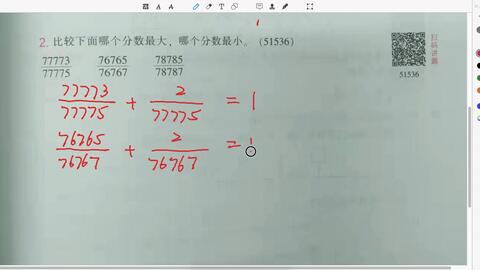 2. 比较下面哪个分数最大，哪个分数最小。(51536)
77773/77775 76765/76767 78785/78787
扫码讲题
51536
77773/77775 + 2/77775 = 1
76765/76767 + 2/76767 = 1